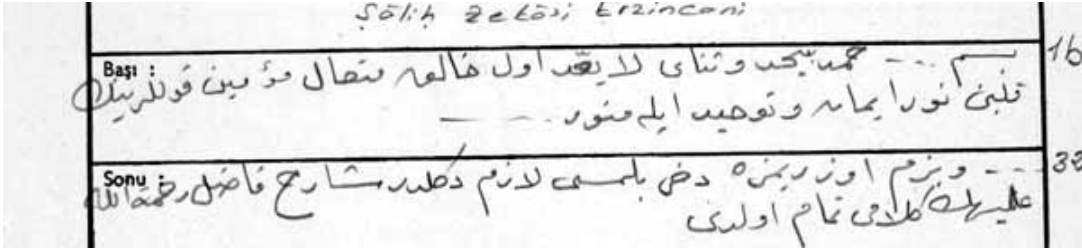 Sālih Zekāsi Erzincani
Başı : بسم ... حمد بيحد و ثنای لا يعد اول خالق متعال مؤمين قوللرينك 1b
قلبن نور ايمان و توحيد ايله منور ...
Sonu : ... و بزم اوزريمزه دخی بلمسی لازم دكلدر شارح فاضل رحمة الله
عليهك كلامی تمام اولدی